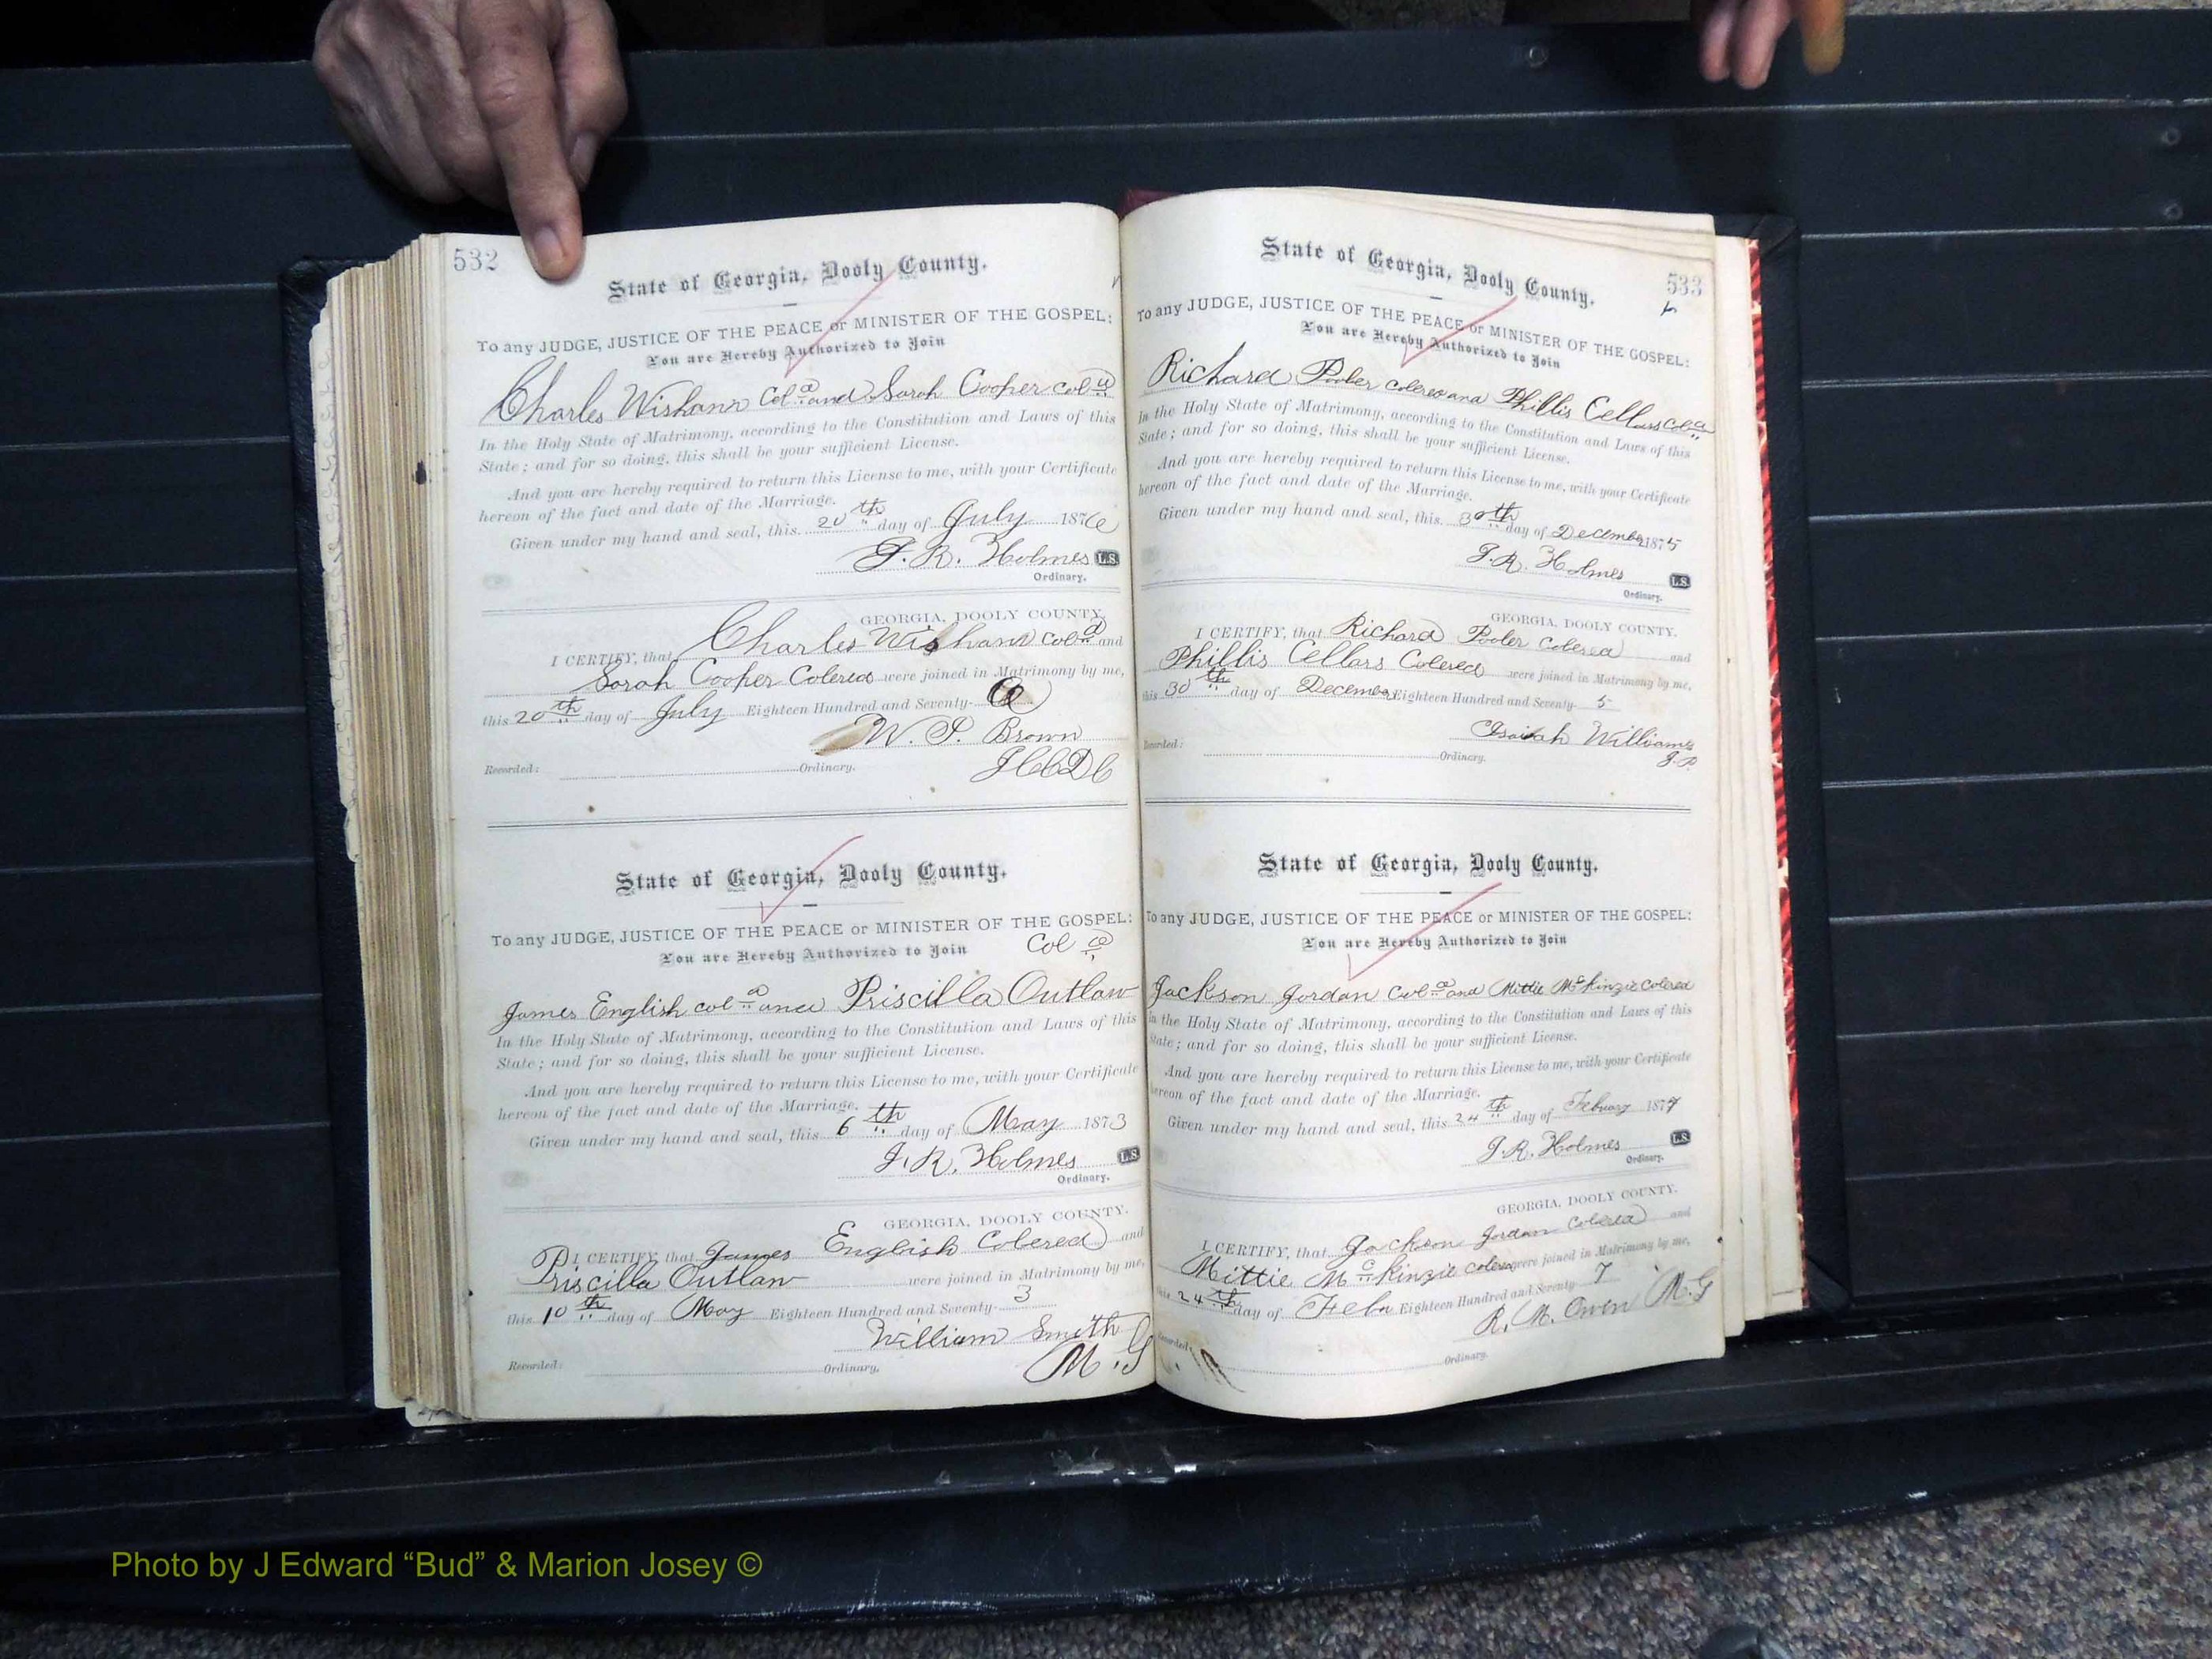 532
State of Georgia, Dooly County.
To any JUDGE, JUSTICE OF THE PEACE or MINISTER OF THE GOSPEL:
You are Hereby Authorized to Join
Charles Wishann Cold and Sarah Cooper cold
In the Holy State of Matrimony, according to the Constitution and Laws of this
State; and for so doing, this shall be your sufficient License.
And you are hereby required to return this License to me, with your Certificate
hereon of the fact and date of the Marriage.
Given under my hand and seal, this 20th day of July 1876
J. R. Holmes L.S.
Ordinary.
GEORGIA, DOOLY COUNTY.
I CERTIFY, that Charles Wishann Cold and
Sarah Cooper Colered were joined in Matrimony by me,
this 20th day of July Eighteen Hundred and Seventy- 6
W. P. Brown
Recorded: Ordinary. JCCDC
State of Georgia, Dooly County.
To any JUDGE, JUSTICE OF THE PEACE or MINISTER OF THE GOSPEL:
You are Hereby Authorized to Join Col d
James English cold and Priscilla Outlaw
In the Holy State of Matrimony, according to the Constitution and Laws of this
State; and for so doing, this shall be your sufficient License.
And you are hereby required to return this License to me, with your Certificate
hereon of the fact and date of the Marriage.
Given under my hand and seal, this 6th day of May 1873
J. R. Holmes L.S.
Ordinary.
GEORGIA, DOOLY COUNTY.
I CERTIFY, that James English Colered and
Priscilla Outlaw were joined in Matrimony by me,
this 10th day of May Eighteen Hundred and Seventy- 3
William Smith
Recorded: Ordinary. M.G
533
State of Georgia, Dooly County.
To any JUDGE, JUSTICE OF THE PEACE or MINISTER OF THE GOSPEL:
You are Hereby Authorized to Join
Richard Pooler colered and Phillis Cellars cold
In the Holy State of Matrimony, according to the Constitution and Laws of this
State; and for so doing, this shall be your sufficient License.
And you are hereby required to return this License to me, with your Certificate
hereon of the fact and date of the Marriage.
Given under my hand and seal, this 30th day of December 1875
J. R. Holmes L.S.
Ordinary.
GEORGIA, DOOLY COUNTY.
I CERTIFY, that Richard Pooler Colered and
Phillis Cellars Colered were joined in Matrimony by me,
this 30th day of December Eighteen Hundred and Seventy- 5
Isaiah Williams
Recorded: Ordinary. J.P.
State of Georgia, Dooly County.
To any JUDGE, JUSTICE OF THE PEACE or MINISTER OF THE GOSPEL:
You are Hereby Authorized to Join
Jackson Jordan Cold and Mittie McKinzie Colered
In the Holy State of Matrimony, according to the Constitution and Laws of this
State; and for so doing, this shall be your sufficient License.
And you are hereby required to return this License to me, with your Certificate
hereon of the fact and date of the Marriage.
Given under my hand and seal, this 24th day of Febuary 1877
J. R. Holmes L.S.
Ordinary.
GEORGIA, DOOLY COUNTY.
I CERTIFY, that Jackson Jordan Colered and
Mittie McKinzie Colered were joined in Matrimony by me,
this 24th day of Feby Eighteen Hundred and Seventy- 7
R. M. Owen M.G
Recorded: Ordinary.
Photo by J Edward “Bud” & Marion Josey ©